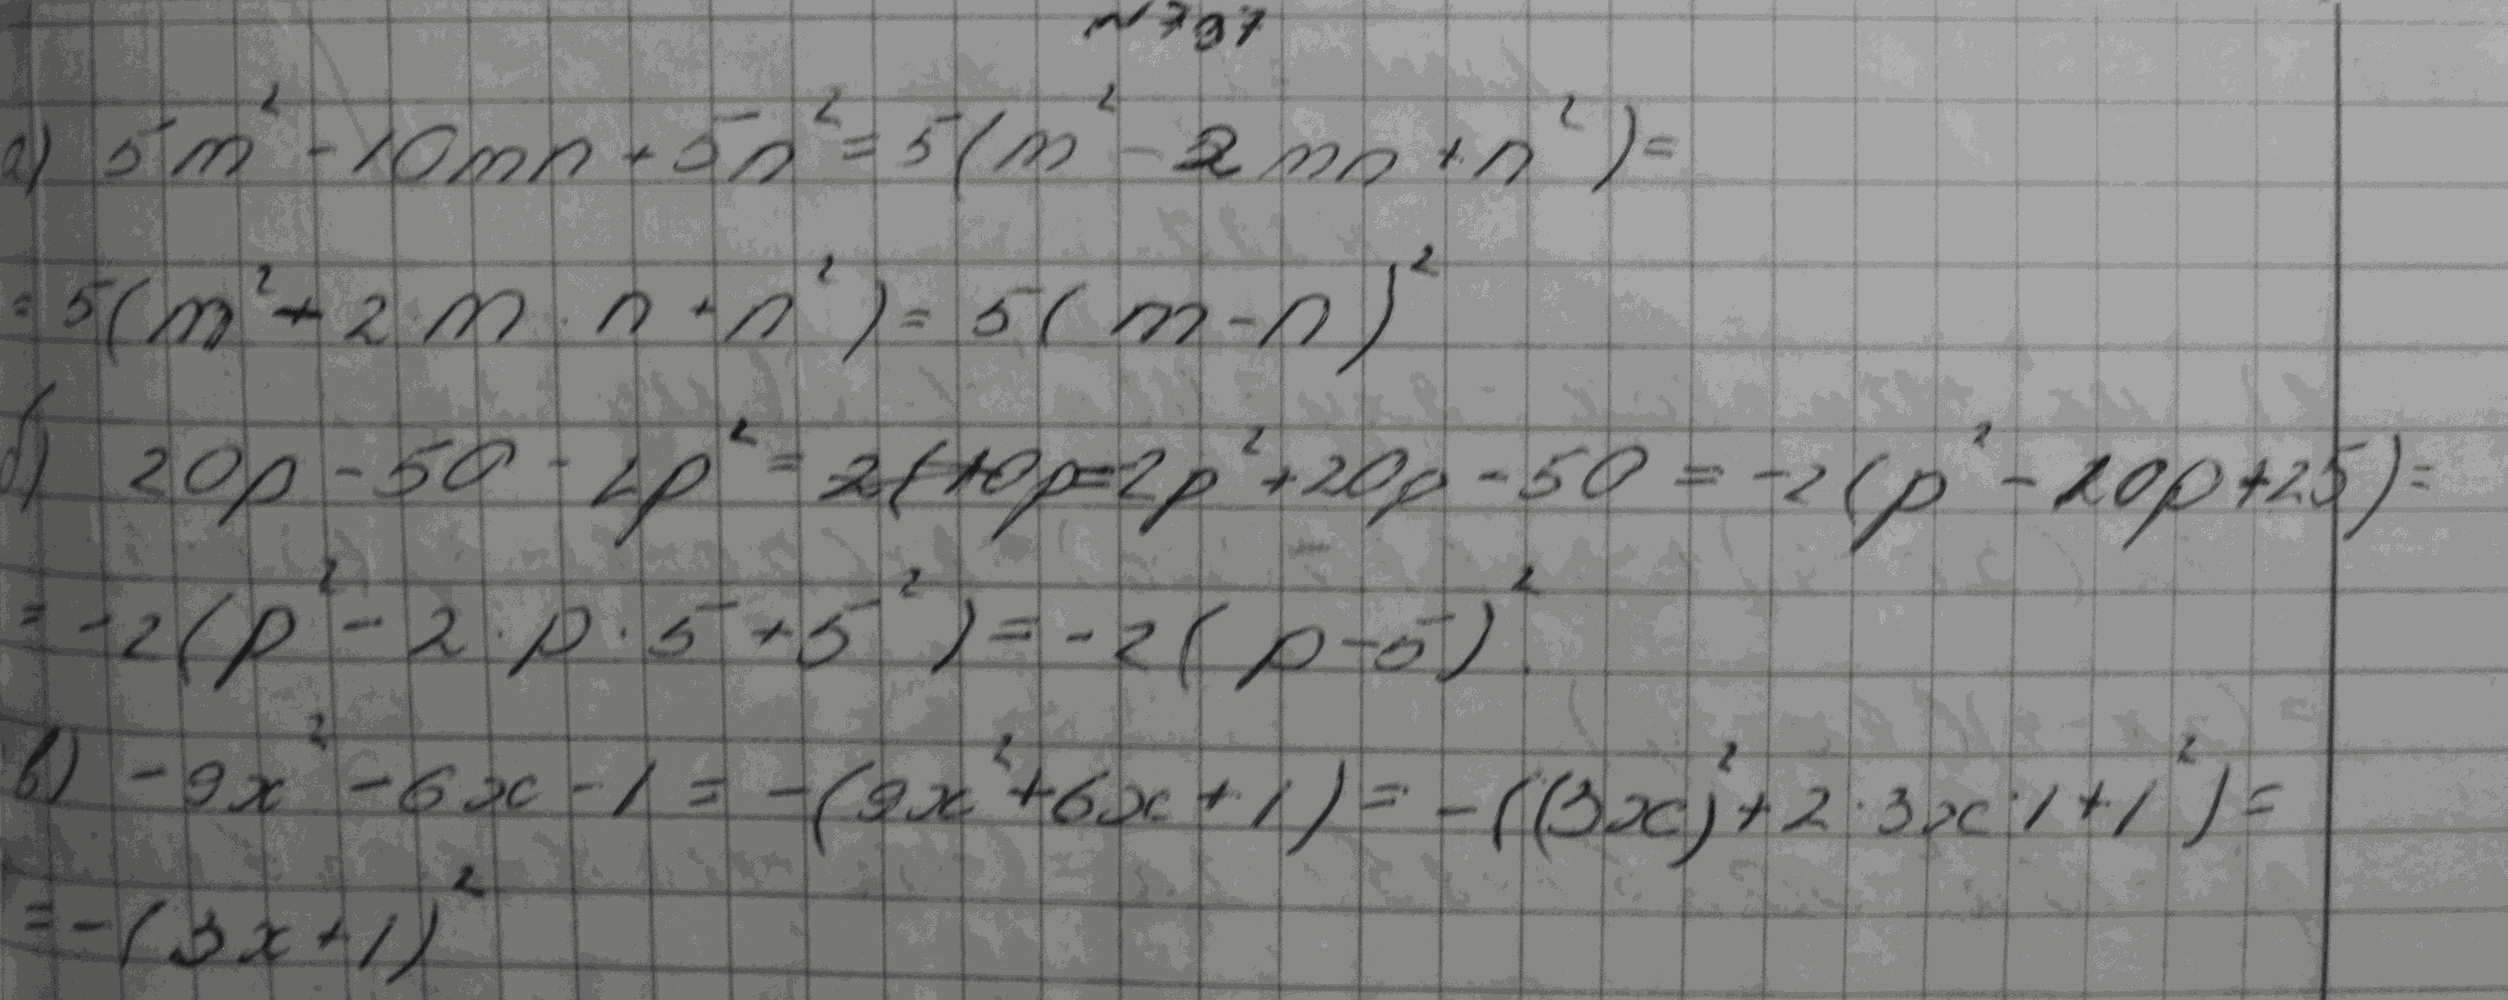 №797
а) 5m² - 10mn + 5n² = 5(m² - 2mn + n²) =
= 5(m² + 2·m·n + n²) = 5(m-n)²
б) 20p - 50 - 2p² = -2p² + 20p - 50 = -2(p² - 10p + 25) =
= -2(p² - 2·p·5 + 5²) = -2(p-5)².
в) -9x² - 6x - 1 = -(9x² + 6x + 1) = -((3x)² + 2·3x·1 + 1²) =
= -(3x+1)²